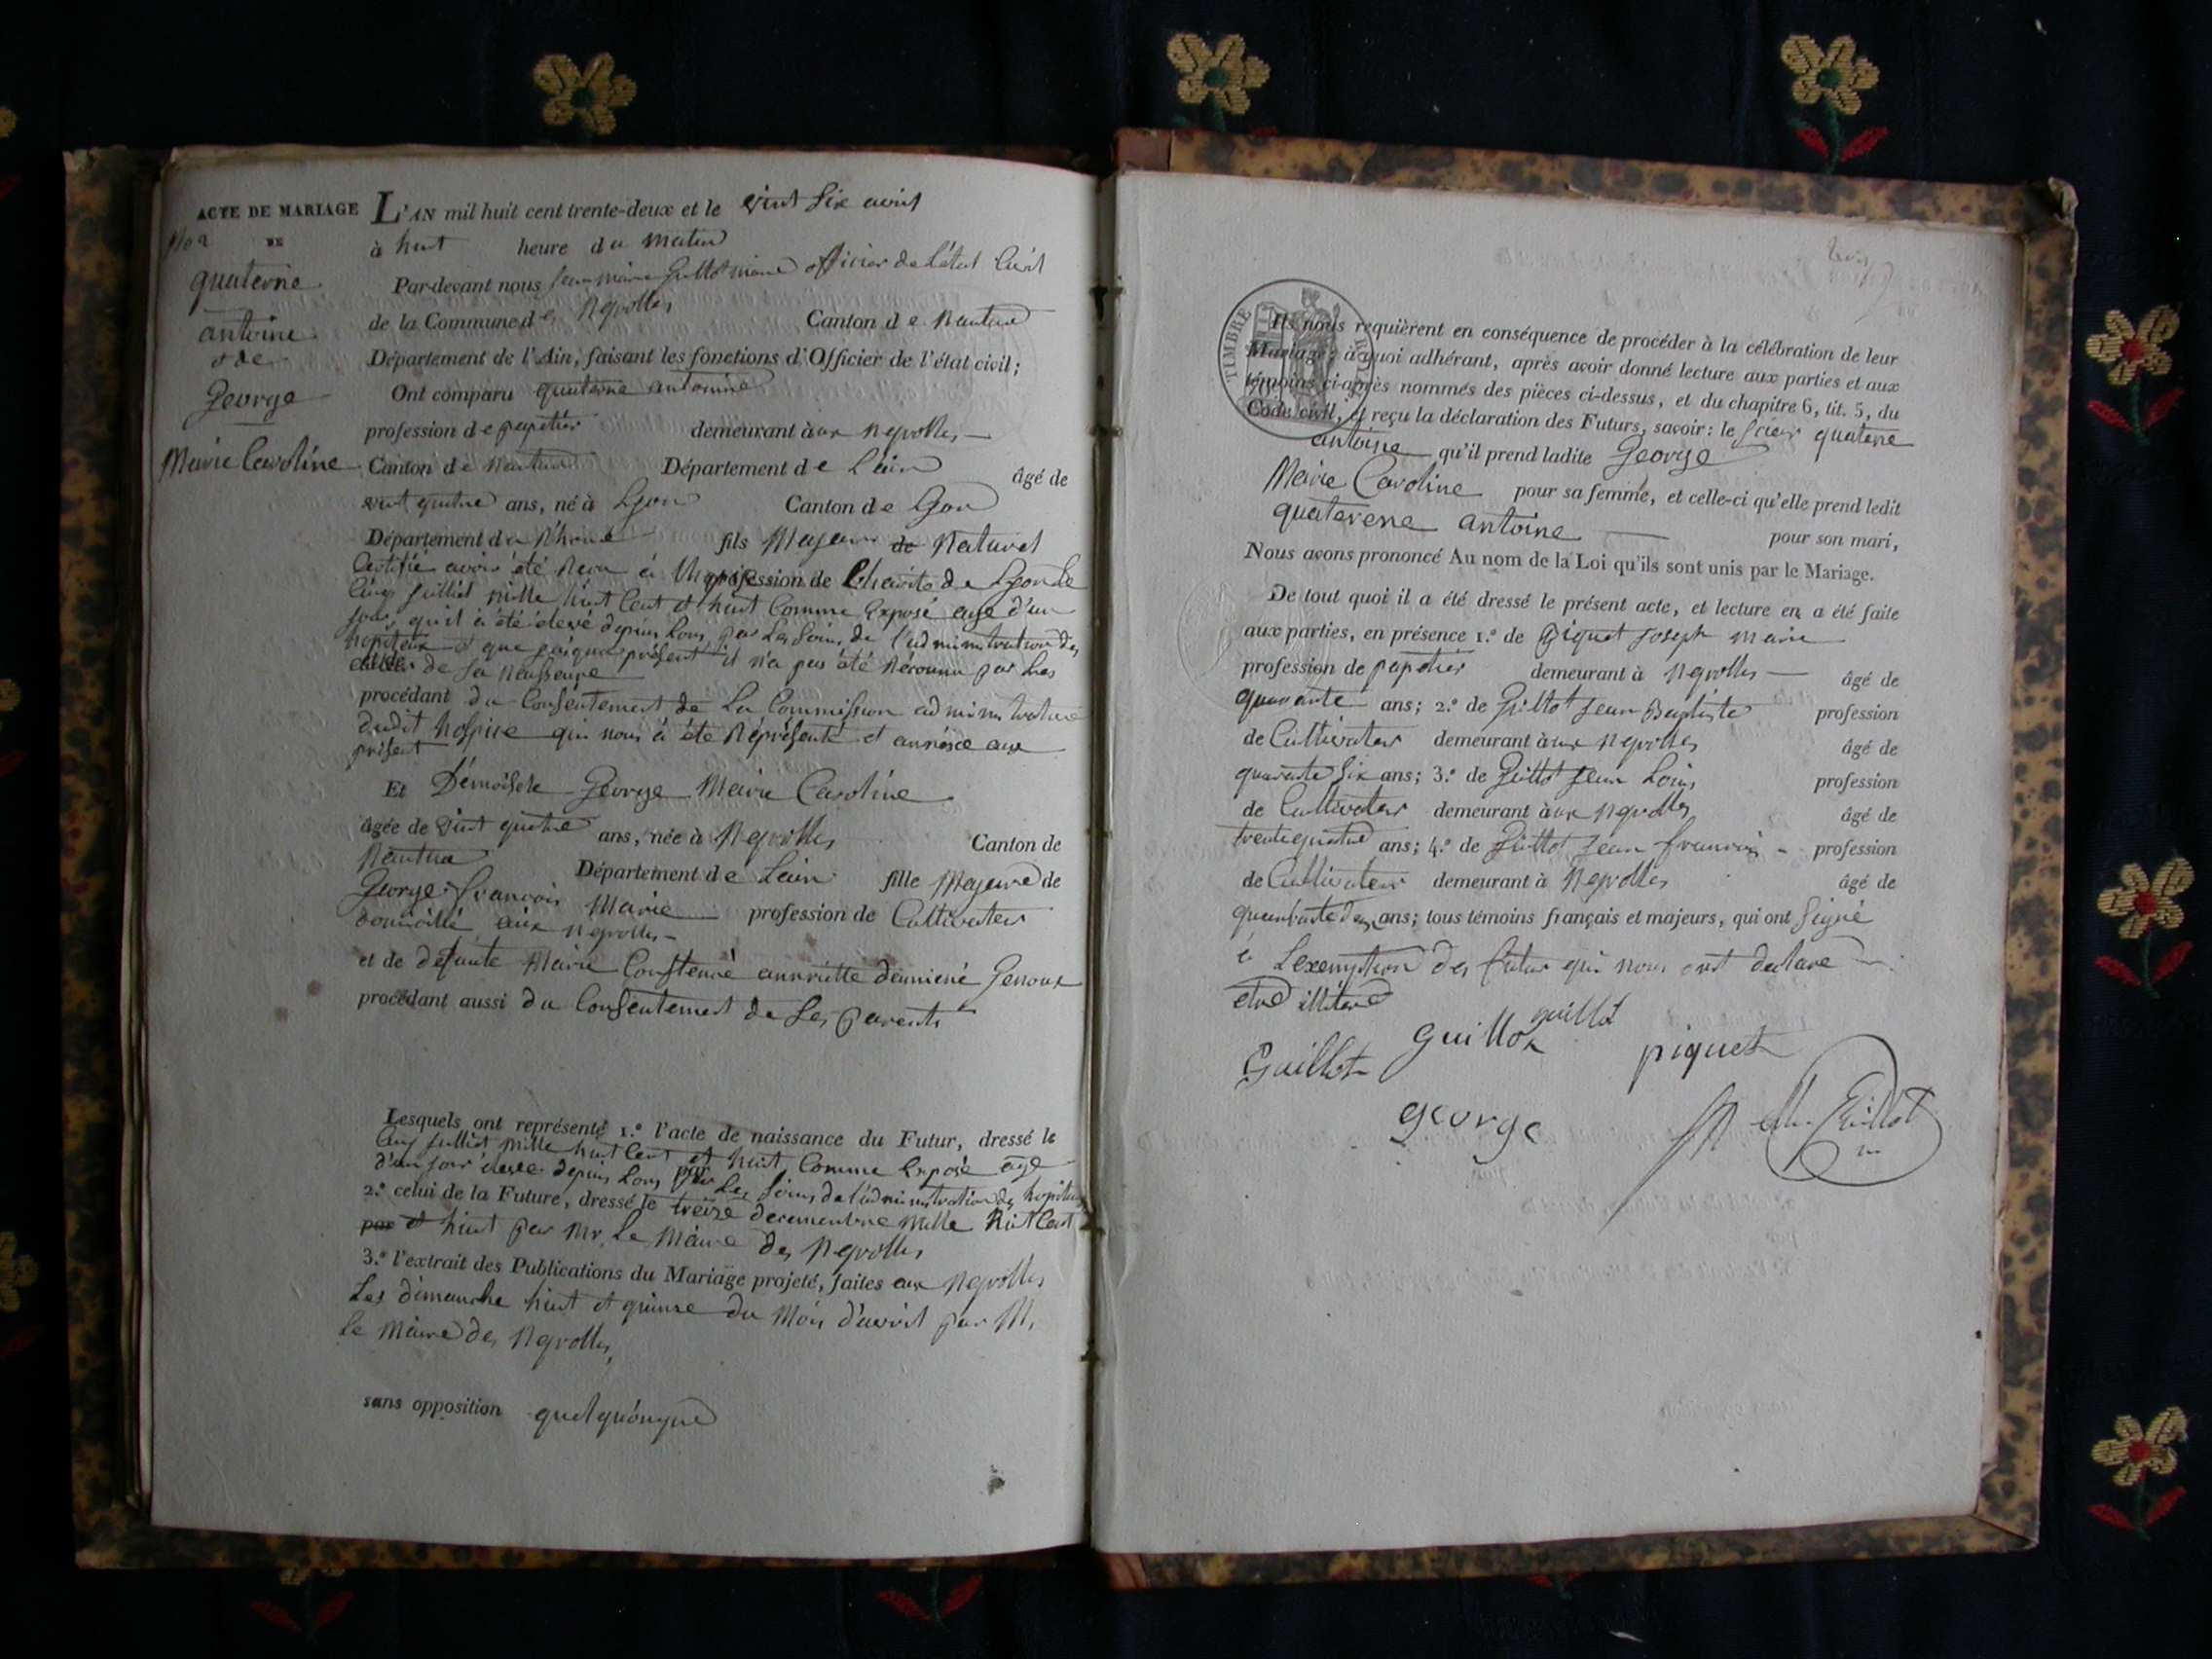 ACTE DE MARIAGE
No 2
DE
quaterne
antoine
& de
George
Marie Caroline
L'AN mil huit cent trente-deux et le vint six avril
à huit heure du matin
Pardevant nous jean marie Guillot maire officier de l'état Civil
de la Commune des Neyrolles Canton de Nantua
Département de l'Ain, faisant les fonctions d'Officier de l'état civil;
Ont comparu quaterne antoine
profession de papetier demeurant aux Neyrolles
Canton de Nantua Département de L'ain âgé de
vint quatre ans, né à Lyon Canton de Lyon
Département du Rhone fils Majeur de Naturel
Certifié avoir été Recu à profession de Charité de Lyon Le
Cinq juilliet mille huit Cent et huit Comme Exposé age d'un
jour, qu'il à été élevé depuis Lors par Les soins de l'administration des
hopiteux et que jusqua présent il n'a pas été Réconnu par Les
de sa Naissance
procédant du Consentement de La Commission administrative
dudit hospice qui nous à été Réprésenté et annéxé aux
présent
Et Démoisele George Marie Caroline
âgée de vint quatre ans, née à Neyrolles Canton de
Nantua Département de L'ain fille Majeure de
George françois Marie profession de Cultivateur
domicillié aux Neyrolles
et de defunte Marie Genoux
procédant aussi du Consentement de Ses parents
Lesquels ont représenté 1.º l'acte de naissance du Futur, dressé le
Cinq juilliet mille huit Cent et huit Comme Exposé age
d'un jour élevée depuis Lors par Les soins de l'administration des hopiteux
2.º celui de la Future, dressé le treize decembre mille huit Cent
par et huit par Mr Le Maire des Neyrolles
3.º l'extrait des Publications du Mariage projeté, faites aux Neyrolles
Les dimanche huit et quinze du Mois d'avril par M,
Le Maire des Neyrolles,
sans opposition quelquonque
TIMBRE ROYAL
Ils nous requièrent en conséquence de procéder à la célébration de leur
Mariage; à quoi adhérant, après avoir donné lecture aux parties et aux
témoins ci-après nommés des pièces ci-dessus, et du chapitre 6, tit. 5, du
Code civil, et reçu la déclaration des Futurs, savoir: le sieur quaterne
antoine qu'il prend ladite George
Marie Caroline pour sa femme, et celle-ci qu'elle prend ledit
quaterene antoine pour son mari,
Nous avons prononcé Au nom de la Loi qu'ils sont unis par le Mariage.
De tout quoi il a été dressé le présent acte, et lecture en a été faite
aux parties, en présence 1.º de Piquet joseph marie
profession de papetier demeurant à Neyrolles âgé de
quarante ans; 2.º de Guillot jean Baptiste profession
de Cultivateur demeurant aux Neyrolles âgé de
quarante six ans; 3.º de Guillot jean Louis profession
de Cultivateur demeurant aux Neyrolles âgé de
trente quatre ans; 4.º de Guillot jean françois profession
de Cultivateur demeurant à Neyrolles âgé de
quarante deux ans; tous témoins français et majeurs, qui ont Signé
à L'exemption des futur qui nous ont declaré
etre illiteré
guillot
Guillot
piquet
Guillot
george
Guillot